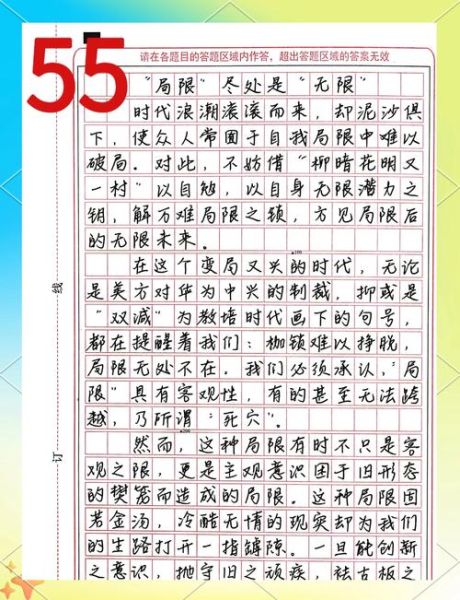 55
请在各题目的答题区域内作答，超出答题区域的答案无效
“局限”尽处是“无限”
时代浪潮滚滚而来，却泥沙俱
下，使众人常囿于自我局限中难以
破局。对此，不妨借“柳暗花明又
一村”以自勉，以自身无限潜力之
钥，解万难局限之锁，方见局限后
的无限未来。
在这个变局又兴的时代，无论
是美方对华为中兴的制裁，抑或是
“双减”为教培时代画下的句号，
都在提醒着我们：枷锁难以挣脱，
局限无处不在。我们必须承认，“局
限”具有客观性，有的甚至无法跨
越，乃所谓“死穴”。
然而，这种局限有时不只是客
观之限，更是主观意识困于旧形态
的樊笼而造成的局限。这种局限固
若金汤，冷酷无情的现实却为我们
的生路打开一指罅隙。一旦能创新
之意识，抛守旧之顽疾，祛古板之
线
订